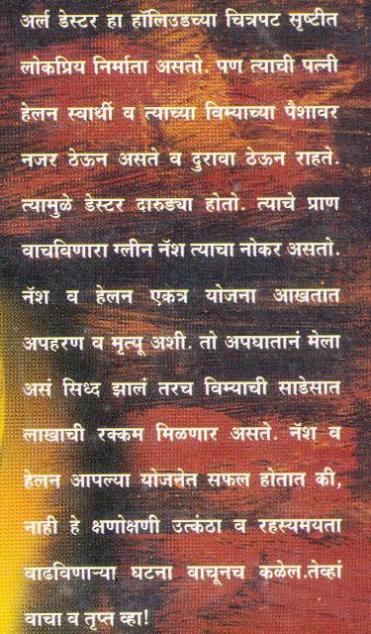 अर्ल डेस्टर हा हॉलिउडच्या चित्रपट सृष्टीत
लोकप्रिय निर्माता असतो. पण त्याची पत्नी
हेलन स्वार्थी व त्याच्या विम्याच्या पैशावर
नजर ठेऊन असते व दुरावा ठेऊन राहते.
त्यामुळे डेस्टर दारुड्या होतो. त्याचे प्राण
वाचविणारा ग्लीन नॅश त्याचा नोकर असतो.
नॅश व हेलन एकत्र योजना आखतात
अपहरण व मृत्यू अशी. तो अपघातानं मेला
असं सिध्द झालं तरच विम्याची साडेसात
लाखाची रक्कम मिळणार असते. नॅश व
हेलन आपल्या योजनेत सफल होतात की,
नाही हे क्षणोक्षणी उत्कंठा व रहस्यमयता
वाढविणाऱ्या घटना वाचूनच कळेल.तेव्हां
वाचा व तृप्त व्हा!